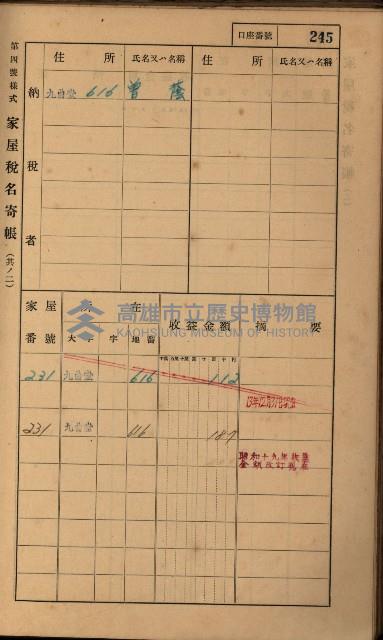 口座番號 245
第四號樣式 家屋稅名寄帳 (共ノ二)
納稅者
住所 氏名又ハ名稱 住所 氏名又ハ名稱
九曲堂 616 曾
家屋番號 所在 收益金額 摘要
大字 字 地番
高雄市立歷史博物館
KAOHSIUNG MUSEUM OF HISTORY
231 九曲堂 616 112
231 九曲堂 616 187
昭和十九年收益
金額改訂